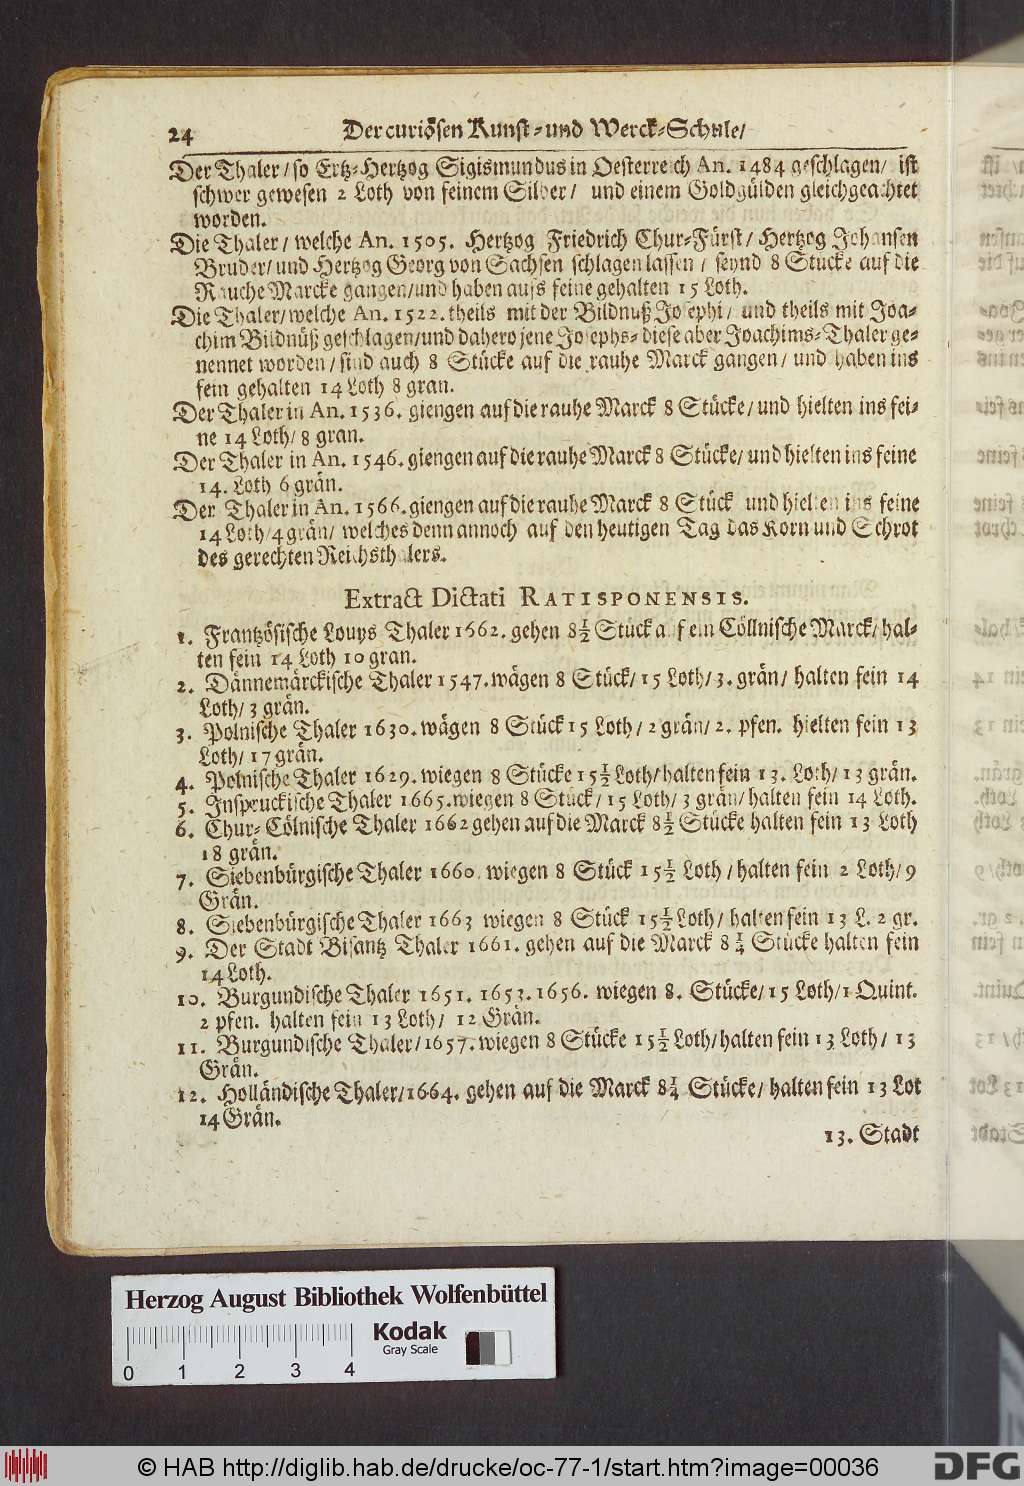 24 Der curiösen Kunst- und Werck-Schule/
Der Thaler/ so Ertz-Hertzog Sigismundus in Oesterreich An. 1484 geschlagen/ ist
schwer gewesen 2 Loth von feinem Silber/ und einem Goldgülden gleichgeachtet
worden.
Die Thaler/ welche An. 1505. Hertzog Friedrich Chur-Fürst/ Hertzog Johansen
Bruder/ und Hertzog Georg von Sachsen schlagen lassen/ seynd 8 Stücke auf die
Rauche Marcke gangen/ und haben aufs feine gehalten 15 Loth.
Die Thaler/ welche An. 1522. theils mit der Bildnuß Josephi/ und theils mit Joa-
chim Bildnüß geschlagen/ und dahero jene Josephs- diese aber Joachims-Thaler ge-
nennet worden/ sind auch 8 Stücke auf die rauhe Marck gangen/ und haben ins
fein gehalten 14 Loth 8 gran.
Der Thaler in An. 1536. giengen auf die rauhe Marck 8 Stücke/ und hielten ins fei-
ne 14 Loth/ 8 gran.
Der Thaler in An. 1546. giengen auf die rauhe Marck 8 Stücke/ und hielten ins feine
14. Loth 6 grän.
Der Thaler in An. 1566. giengen auf die rauhe Marck 8 Stück und hielten ins feine
14 Loth/ 4 grän/ welches denn annoch auf den heutigen Tag das Korn und Schrot
des gerechten Reichsthalers.
Extract Dictati RATISPONENSIS.
1. Frantzösische Louys Thaler 1662. gehen 8½ Stück auf ein Cöllnische Marck/ hal-
ten fein 14 Loth 10 gran.
2. Dännemärckische Thaler 1547. wägen 8 Stück/ 15 Loth/ 3. grän/ halten fein 14
Loth/ 3 grän.
3. Polnische Thaler 1630. wägen 8 Stück 15 Loth/ 2 grän/ 2. pfen. hielten fein 13
Loth/ 17 grän.
4. Polnische Thaler 1629. wiegen 8 Stücke 15½ Loth/ halten fein 13. Loth/ 13 grän.
5. Inspruckische Thaler 1665. wiegen 8 Stück/ 15 Loth/ 3 grän/ halten fein 14 Loth.
6. Chur-Cölnische Thaler 1662 gehen auf die Marck 8½ Stücke halten fein 13 Loth
18 grän.
7. Siebenbürgische Thaler 1660. wiegen 8 Stück 15½ Loth/ halten fein 2 Loth/ 9
Grän.
8. Siebenbürgische Thaler 1663 wiegen 8 Stück 15½ Loth/ halten fein 13 L. 2 gr.
9. Der Stadt Bisantz Thaler 1661. gehen auf die Marck 8¼ Stücke halten fein
14 Loth.
10. Burgundische Thaler 1651. 1653. 1656. wiegen 8. Stücke/ 15 Loth/ 1 Quint.
2 pfen. halten fein 13 Loth/ 12 Grän.
11. Burgundische Thaler/ 1657. wiegen 8 Stücke 15½ Loth/ halten fein 13 Loth/ 13
Grän.
12. Holländische Thaler/ 1664. gehen auf die Marck 8¼ Stücke/ halten fein 13 Lot
14 Grän.
13. Stadt
Herzog August Bibliothek Wolfenbüttel
Kodak
Gray Scale
0 1 2 3 4
© HAB http://diglib.hab.de/drucke/oc-77-1/start.htm?image=00036
DFG